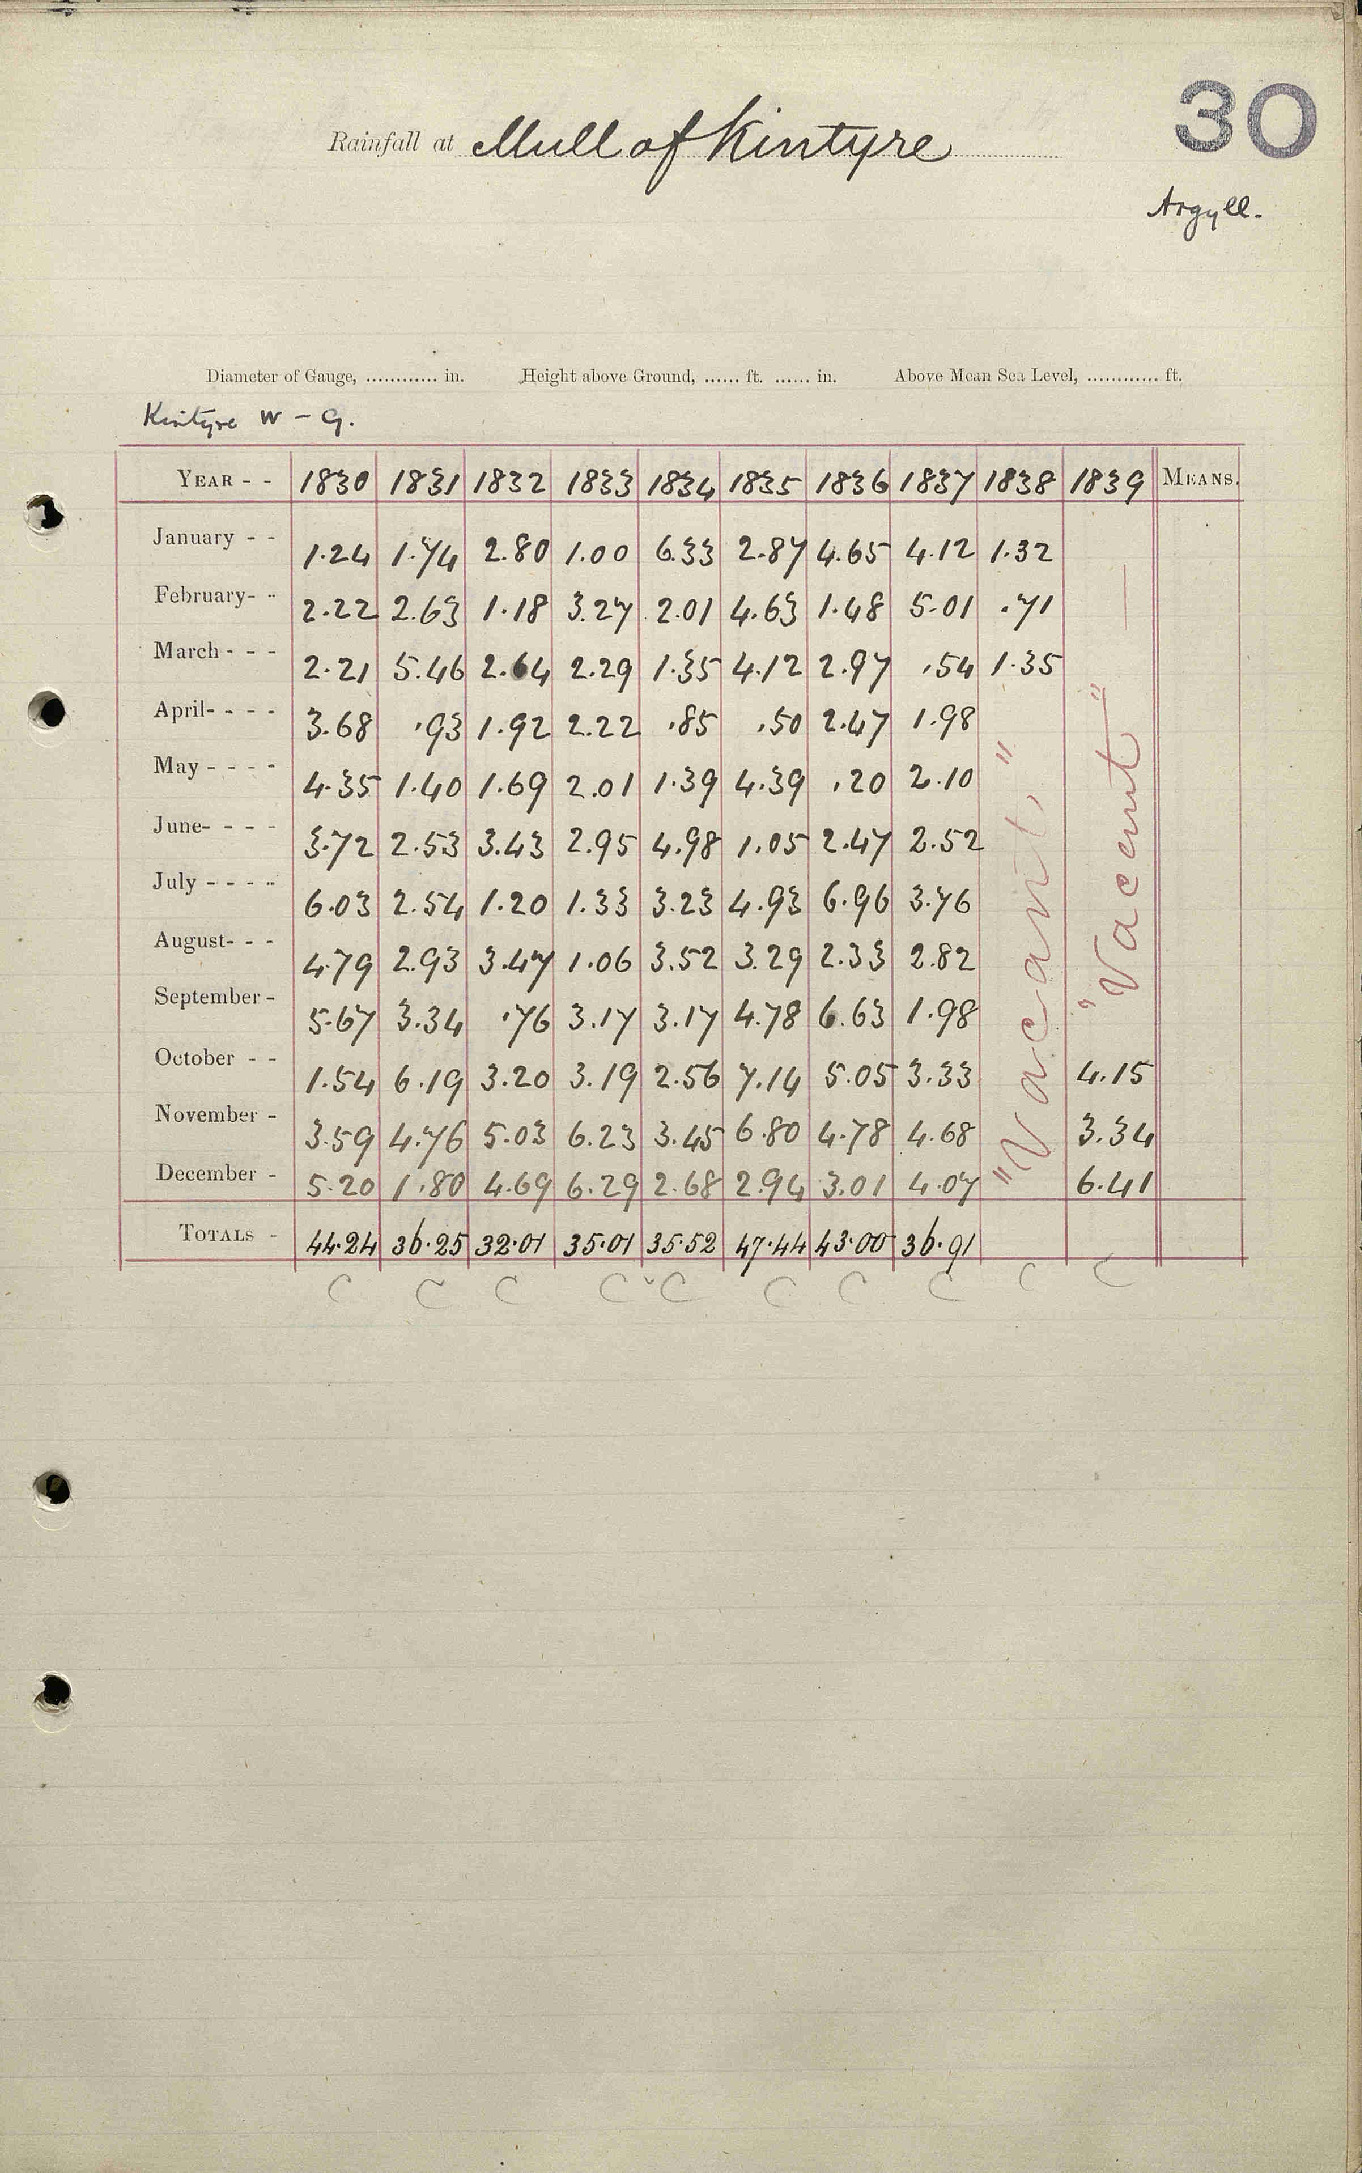 30
Rainfall at Mull of Kintyre
Argyll.
Diameter of Gauge, ............ in. Height above Ground, ...... ft. ...... in. Above Mean Sea Level, ............ ft.
Kintyre W - G.
YEAR - - 1830 1831 1832 1833 1834 1835 1836 1837 1838 1839 MEANS.
January - - 1.24 1.74 2.80 1.00 6.33 2.87 4.65 4.12 1.32
February- - 2.22 2.63 1.18 3.27 2.01 4.63 1.48 5.01 .71
March - - - 2.21 5.46 2.64 2.29 1.35 4.12 2.97 .54 1.35
April- - - - 3.68 .93 1.92 2.22 .85 .50 2.47 1.98
May - - - - 4.35 1.40 1.69 2.01 1.39 4.39 .20 2.10
June- - - - 3.72 2.53 3.43 2.95 4.98 1.05 2.47 2.52
July - - - - 6.03 2.54 1.20 1.33 3.23 4.93 6.96 3.76
August- - - 4.79 2.93 3.47 1.06 3.52 3.29 2.33 2.82
September - 5.67 3.34 .76 3.17 3.17 4.78 6.63 1.98
October - - 1.54 6.19 3.20 3.19 2.56 7.14 5.05 3.33 4.15
November - 3.59 4.76 5.03 6.23 3.45 6.80 4.78 4.68 3.34
December - 5.20 1.80 4.69 6.29 2.68 2.94 3.01 4.07 6.41
"Vacant"
"Vacant"
TOTALS - 44.24 36.25 32.01 35.01 35.52 47.44 43.00 36.91
C C C C C C C C C C